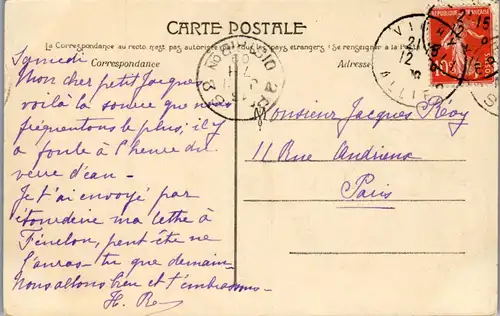 CARTE POSTALE
La Correspondance au recto n'est pas autorisée par tous les pays étrangers. Se renseigner à la Poste
Correspondance
Adresse
Samedi
Mon cher petit Jacques
voilà la source que nous
fréquentons le plus; il y
a foule à l'heure du
verre d'eau-
Je t'ai envoyé par
étourderie ma lettre à
Fénelon, peut-être ne
l'auras-tu que demain-
Nous allons bien et t'embrassons-
H. R
Monsieur Jacques
11 Rue Andrieux
Paris